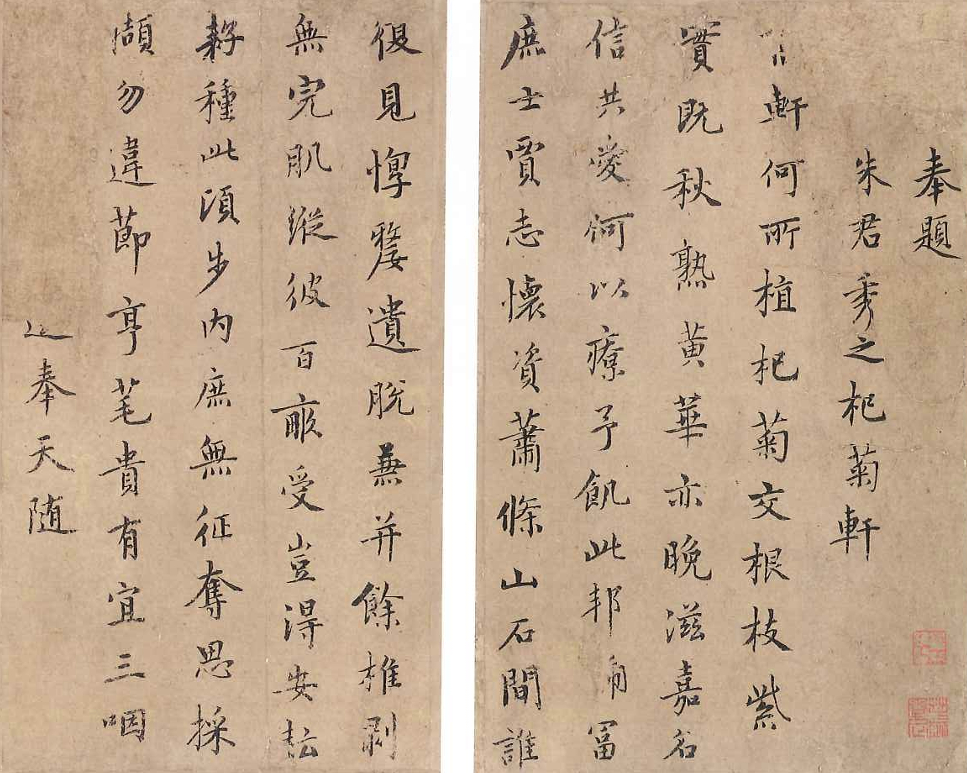 奉題
朱君秀之杞菊軒
軒何所植杞菊交根枝紫
實既秋熟黃華亦晚滋嘉名
信共愛何以療予飢此邦富
庶士賈志懷資蕭條山石間誰
復見惸嫠遺脫兼并餘椎剝
無完肌縱彼百畝受豈得安耘
耔種此頃步内庶無征奪思採
擷勿違節亨芼貴有宜三咽
奉天隨